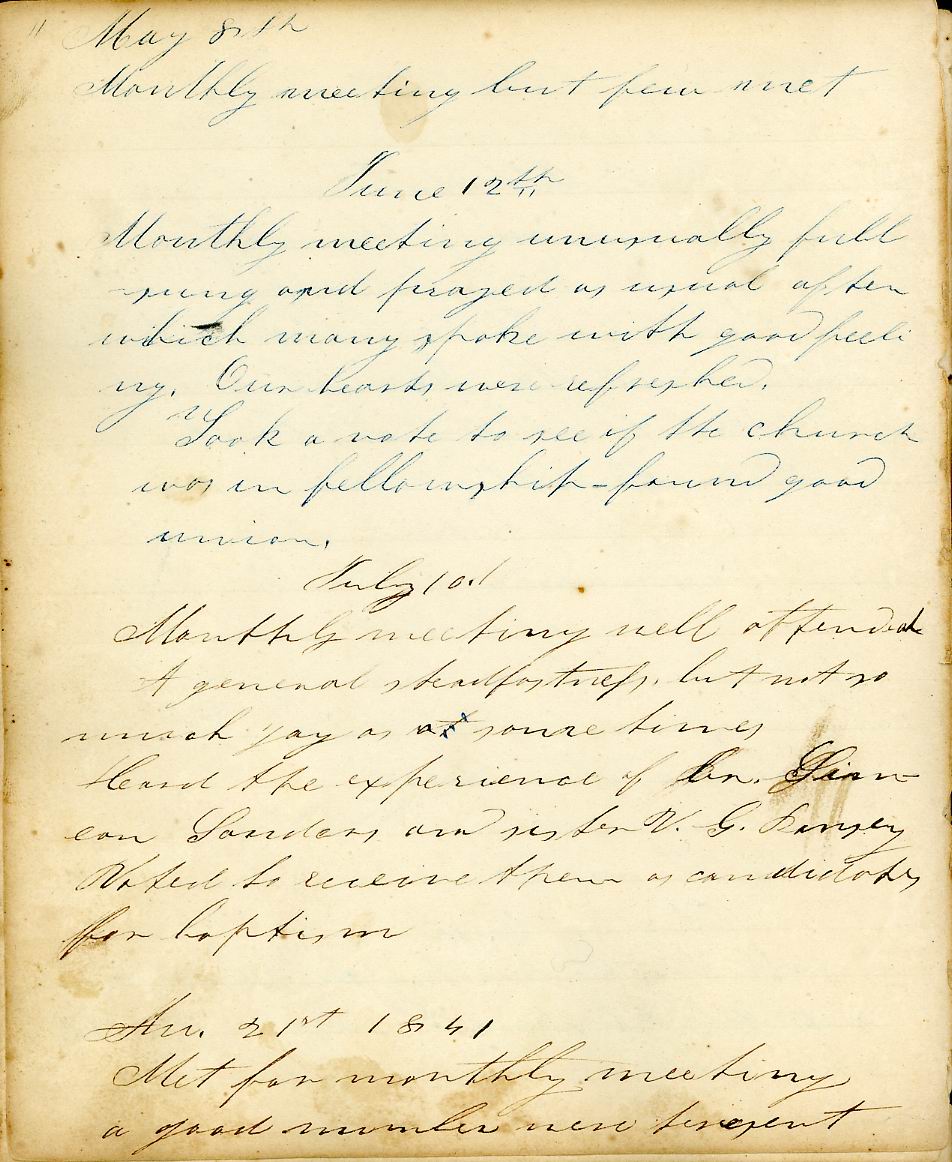 May 8th
Monthly meeting but few met
June 12th
Monthly meeting unusually full
sung and prayed as usual after
which many spoke with good feeli
ng. Our hearts were refreshed.
Took a vote to see if the church
was in fellowship - found good
union.
July 10.
Monthly meeting well attended
A general steadfastness, but not so
much joy as at some times
Heard the experience of br. Sim-
eon Sanders and sister V. G. Kinsey
Voted to receive them as candidates
for baptism
21st 1841
Met for monthly meeting
a good number were present